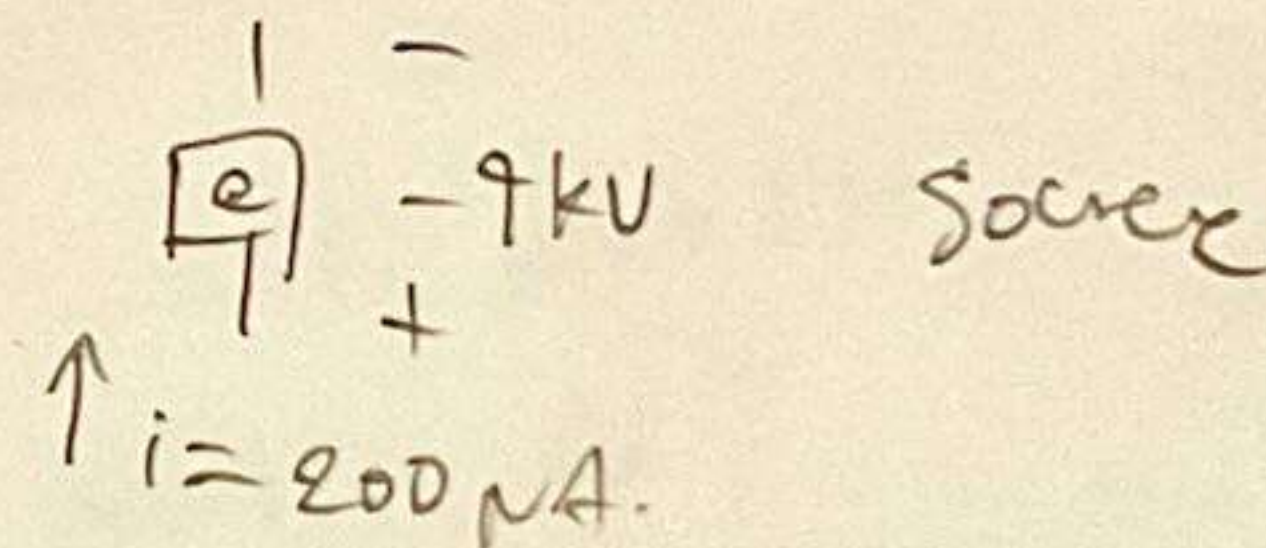 -
e -9kV Source
+
i = 200 μA.